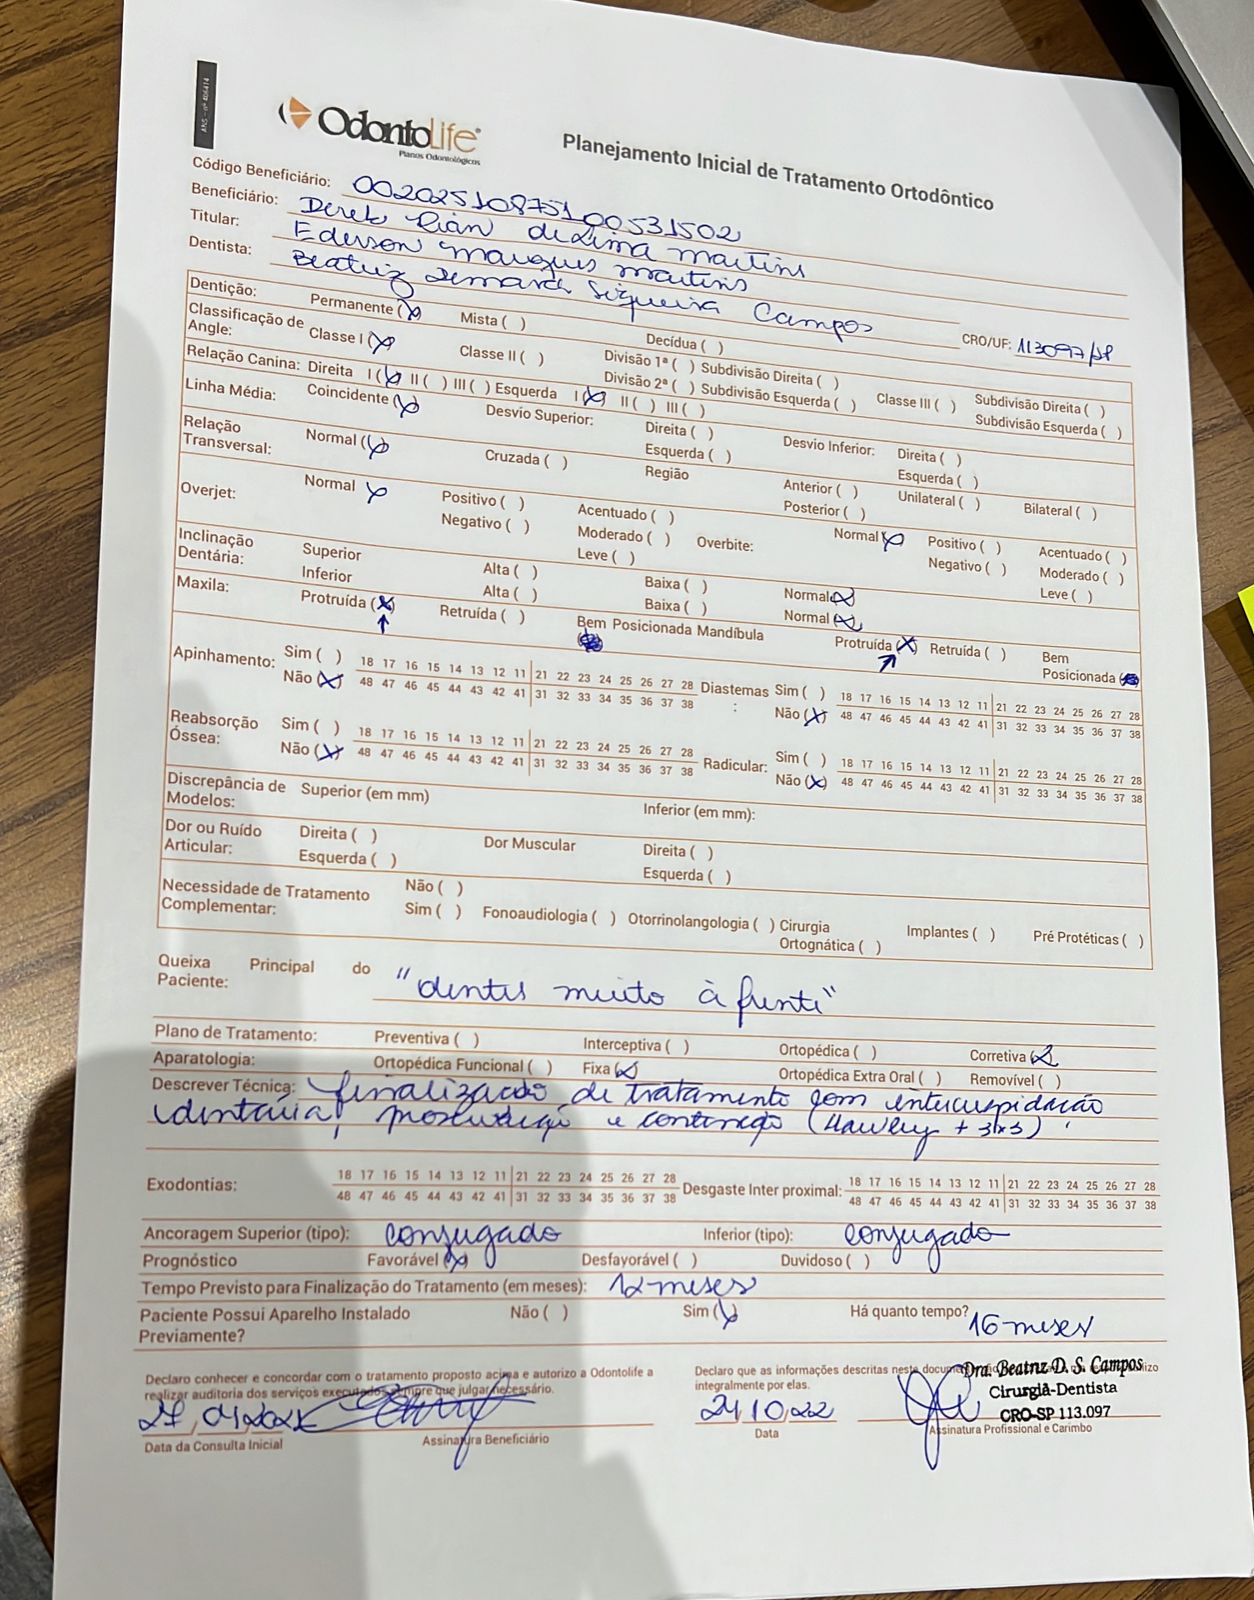 ANS - nº 406414
OdontoLife
Planos Odontológicos
Planejamento Inicial de Tratamento Ortodôntico
Código Beneficiário: 00202510875100531502
Beneficiário: Derek Rian de Lima Martins
Titular: Ederson Marques Martins
Dentista: Beatriz Demarch Siqueira Campos CRO/UF: 113097/SP
Dentição: Permanente (X) Mista ( ) Decídua ( )
Classificação de Angle: Classe I (X) Classe II ( ) Divisão 1ª ( ) Subdivisão Direita ( ) Divisão 2ª ( ) Subdivisão Esquerda ( ) Classe III ( ) Subdivisão Direita ( ) Subdivisão Esquerda ( )
Relação Canina: Direita I (X) II ( ) III ( ) Esquerda I (X) II ( ) III ( )
Linha Média: Coincidente (X) Desvio Superior: Direita ( ) Esquerda ( ) Desvio Inferior: Direita ( ) Esquerda ( )
Relação Transversal: Normal (X) Cruzada ( ) Região Anterior ( ) Posterior ( ) Unilateral ( ) Bilateral ( )
Overjet: Normal X Positivo ( ) Negativo ( ) Acentuado ( ) Moderado ( ) Leve ( ) Overbite: Normal X Positivo ( ) Negativo ( ) Acentuado ( ) Moderado ( ) Leve ( )
Inclinação Dentária: Superior Alta ( ) Baixa ( ) Normal (X)
Inferior Alta ( ) Baixa ( ) Normal (X)
Maxila: Protruída (X) Retruída ( ) Bem Posicionada Mandíbula Protruída (X) Retruída ( ) Bem Posicionada
Apinhamento: Sim ( ) 18 17 16 15 14 13 12 11 21 22 23 24 25 26 27 28 Diastemas : Sim ( ) 18 17 16 15 14 13 12 11 21 22 23 24 25 26 27 28
Não (X) 48 47 46 45 44 43 42 41 31 32 33 34 35 36 37 38 Não (X) 48 47 46 45 44 43 42 41 31 32 33 34 35 36 37 38
Reabsorção Óssea: Sim ( ) 18 17 16 15 14 13 12 11 21 22 23 24 25 26 27 28 Radicular: Sim ( ) 18 17 16 15 14 13 12 11 21 22 23 24 25 26 27 28
Não (X) 48 47 46 45 44 43 42 41 31 32 33 34 35 36 37 38 Não (X) 48 47 46 45 44 43 42 41 31 32 33 34 35 36 37 38
Discrepância de Modelos: Superior (em mm) Inferior (em mm):
Dor ou Ruído Articular: Direita ( ) Esquerda ( ) Dor Muscular Direita ( ) Esquerda ( )
Necessidade de Tratamento Complementar: Não ( ) Sim ( ) Fonoaudiologia ( ) Otorrinolangologia ( ) Cirurgia Ortognática ( ) Implantes ( ) Pré Protéticas ( )
Queixa Principal do Paciente: "dentes muito à frente"
Plano de Tratamento: Preventiva ( ) Interceptiva ( ) Ortopédica ( ) Corretiva (X)
Aparatologia: Ortopédica Funcional ( ) Fixa (X) Ortopédica Extra Oral ( ) Removível ( )
Descrever Técnica: finalização de tratamento com intercuspidação
dentária, e contenção (Hawley + 3x3).
Exodontias: 18 17 16 15 14 13 12 11 21 22 23 24 25 26 27 28 Desgaste Inter proximal: 18 17 16 15 14 13 12 11 21 22 23 24 25 26 27 28
48 47 46 45 44 43 42 41 31 32 33 34 35 36 37 38 48 47 46 45 44 43 42 41 31 32 33 34 35 36 37 38
Ancoragem Superior (tipo): conjugado Inferior (tipo): conjugado
Prognóstico Favorável (X) Desfavorável ( ) Duvidoso ( )
Tempo Previsto para Finalização do Tratamento (em meses): 12 meses
Paciente Possui Aparelho Instalado Previamente? Não ( ) Sim (X) Há quanto tempo? 16 meses
Declaro conhecer e concordar com o tratamento proposto acima e autorizo a Odontolife a
realizar auditoria dos serviços executados sempre que julgar necessário.
Data da Consulta Inicial Assinatura Beneficiário
Declaro que as informações descritas neste
integralmente por elas.
24/10/22
Data
Dra. Beatriz D. S. Campos
Cirurgiã-Dentista
CRO-SP 113.097
Assinatura Profissional e Carimbo